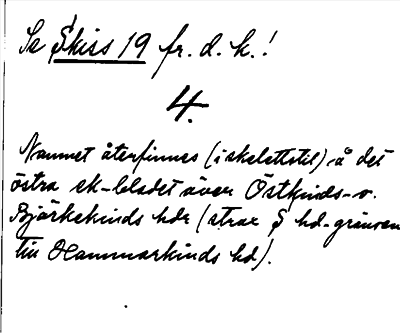 Se Skiss 19 fr. d. k.!
4.
Namnet återfinnes (i skelettstil) å det
östra ek-bladet över Östkinds- o.
Björkekinds hdr (strax S hd-gränsen
till Hammarkinds hd).